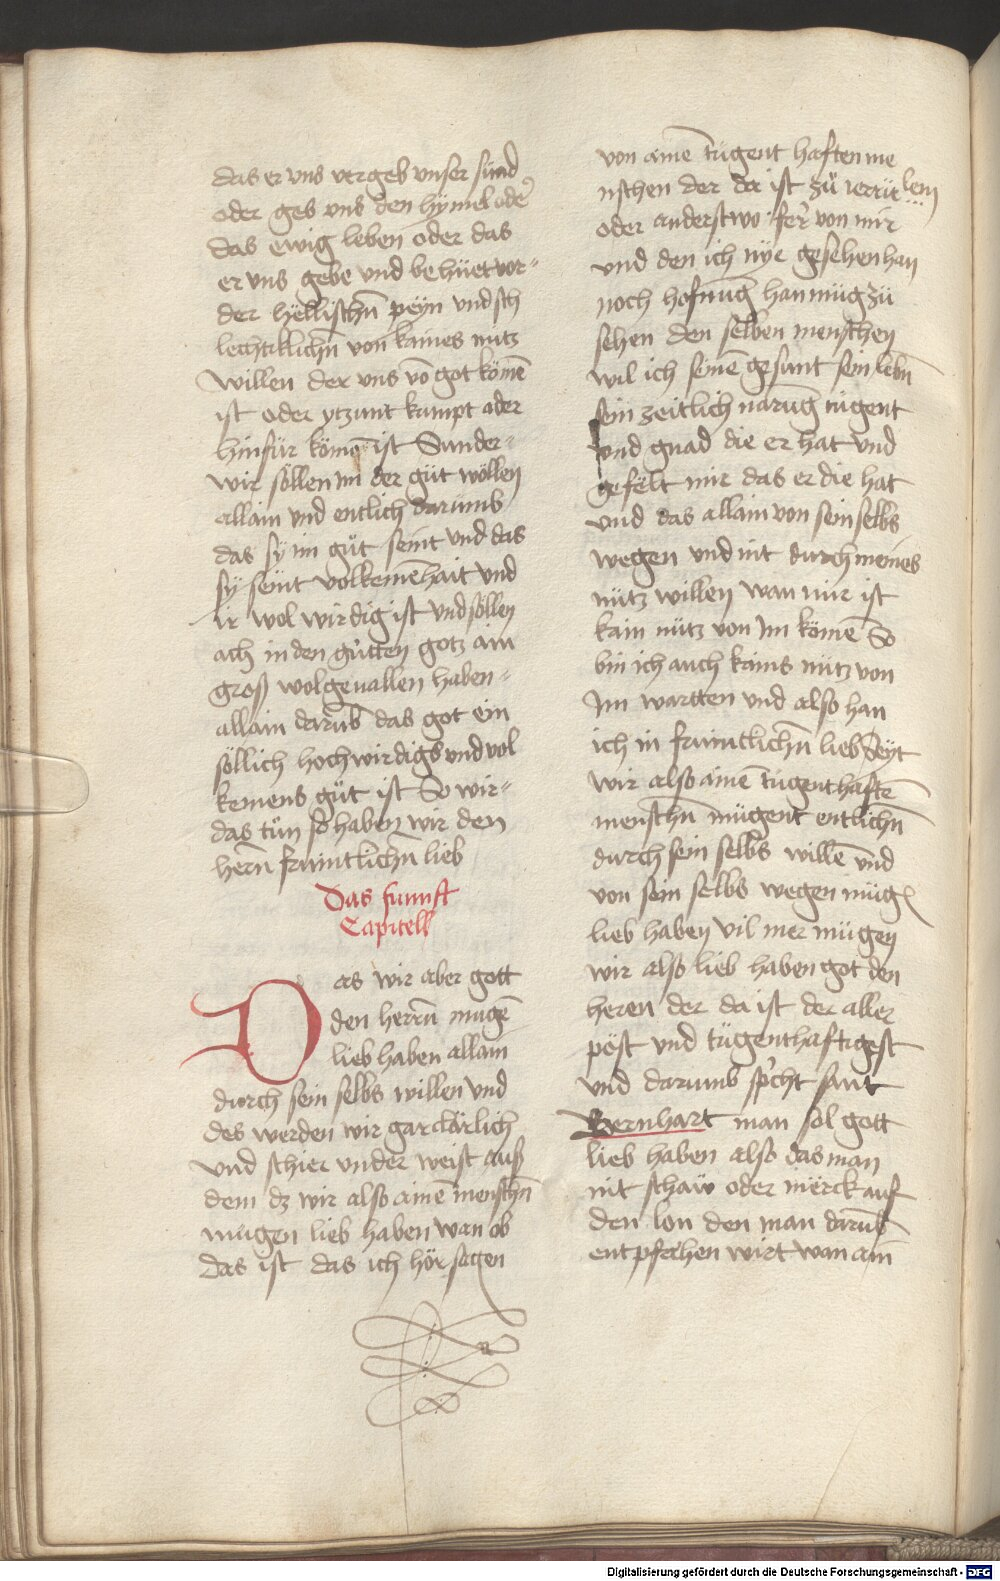 das er vns vergeb vnser sünd
oder geb vns den hÿmel oder
das ewig leben oder das
er vns gebe vnd behüet vor
der hëllischn̄ peÿn vnd sch
lechtiklichn̄ von kaines nütz
willen der vns vō got kömē
ist oder ytzunt kumpt oder
hinfür kömē ist Sunder
wir söllen im der güt wöllen
allain vnd entlich darumb
das sÿ im güt seint vnd das
sÿ seint volkemēhait vnd
ir wol wirdig ist vnd söllen
ach in den gůtten gotz ain
groß wolgeuallen haben
allain darūb das got ein
söllich hochwirdigs vnd vol
kemens güt ist So wir
das tůn so haben wir den
hern̄ fruintlichn̄ lieb
Das funnft
Capitell
Das wir aber gott
den herrn̄ mugē
lieb haben allain
durch sein selbs willen vnd
des werden wir gar clärlich
vnd schier vnder weist auß
dem dz wir also ainē menschn̄
mügen lieb haben wan ob
das ist das ich hör sagen
von ainē tugent haften me
nschen der da ist zů ierru
lem
oder anderstwo fer̄ von mir
vnd den ich nÿe gesehen han
noch hofnūg han müg zü
sehen den selben menschen
wil ich seinē gesunt sein lebn̄
sein zeitlich narūg tugent
vnd gnad die er hat vnd
gefëlt mir das er die hat
vnd das allain von sein selbs
wegen vnd nit durch meines
nütz willen wan mir ist
kain nütz von Im kömē So
bin ich auch kains nütz von
Im wartten vnd also han
ich in fruintlichn̄ lieb Seÿt
wir also ainē tugenthaftē
menschn̄ mügent entlichn̄
durch sein selbs willē vnd
von sein selbs wegen müg
lieb haben vil mer mügen
wir also lieb haben got den
heren der da ist der aller
pöst vnd tügenthaftigest
vnd darumb sp̄cht sant
Bernhart man sol gott
lieb haben also das man
nit schaw oder mërck auf
den lon den man darūb
entpfahen wirt wan ain
Digitalisierung gefördert durch die Deutsche Forschungsgemeinschaft - DFG